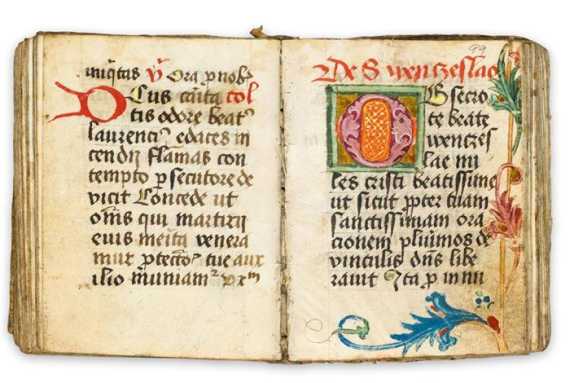 iniq̄tas V̄ Ora p nob̄
Deus cui̅ta tol
tis odore beat⁹
laurenci⁹ edaces in
cendij flamas con
tempto p̄secutore de
vicit Concede ut
om̄s qui martirij
euis meīta venera
mur p̄tectōe tue aux
ilio muniamꝰ pxm̄
99
De S wenczeslao
O Te secro
te beate
wenczes
lae mi
les cristi beatissime
ut sicut ꝓpter tuam
sanctissimam ora
cionem pl̄uimos de
vinculis dn̄s libe
rauit Ita p in nu